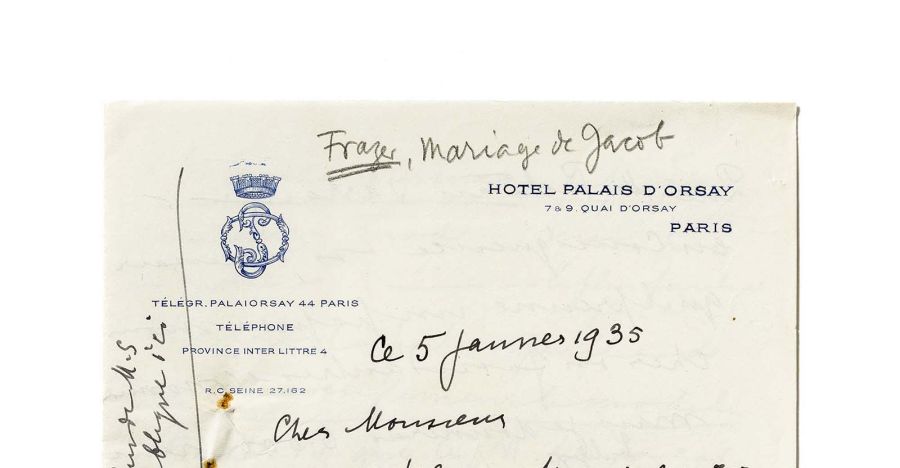 Frazer, Mariage de Jacob
HOTEL PALAIS D'ORSAY
7 & 9. QUAI D'ORSAY
PARIS
TÉLÉGR. PALAIORSAY 44 PARIS
TÉLÉPHONE
PROVINCE INTER LITTRÉ 4
R.C. SEINE 27.162
Ce 5 janvier 1935
Cher Monsieur